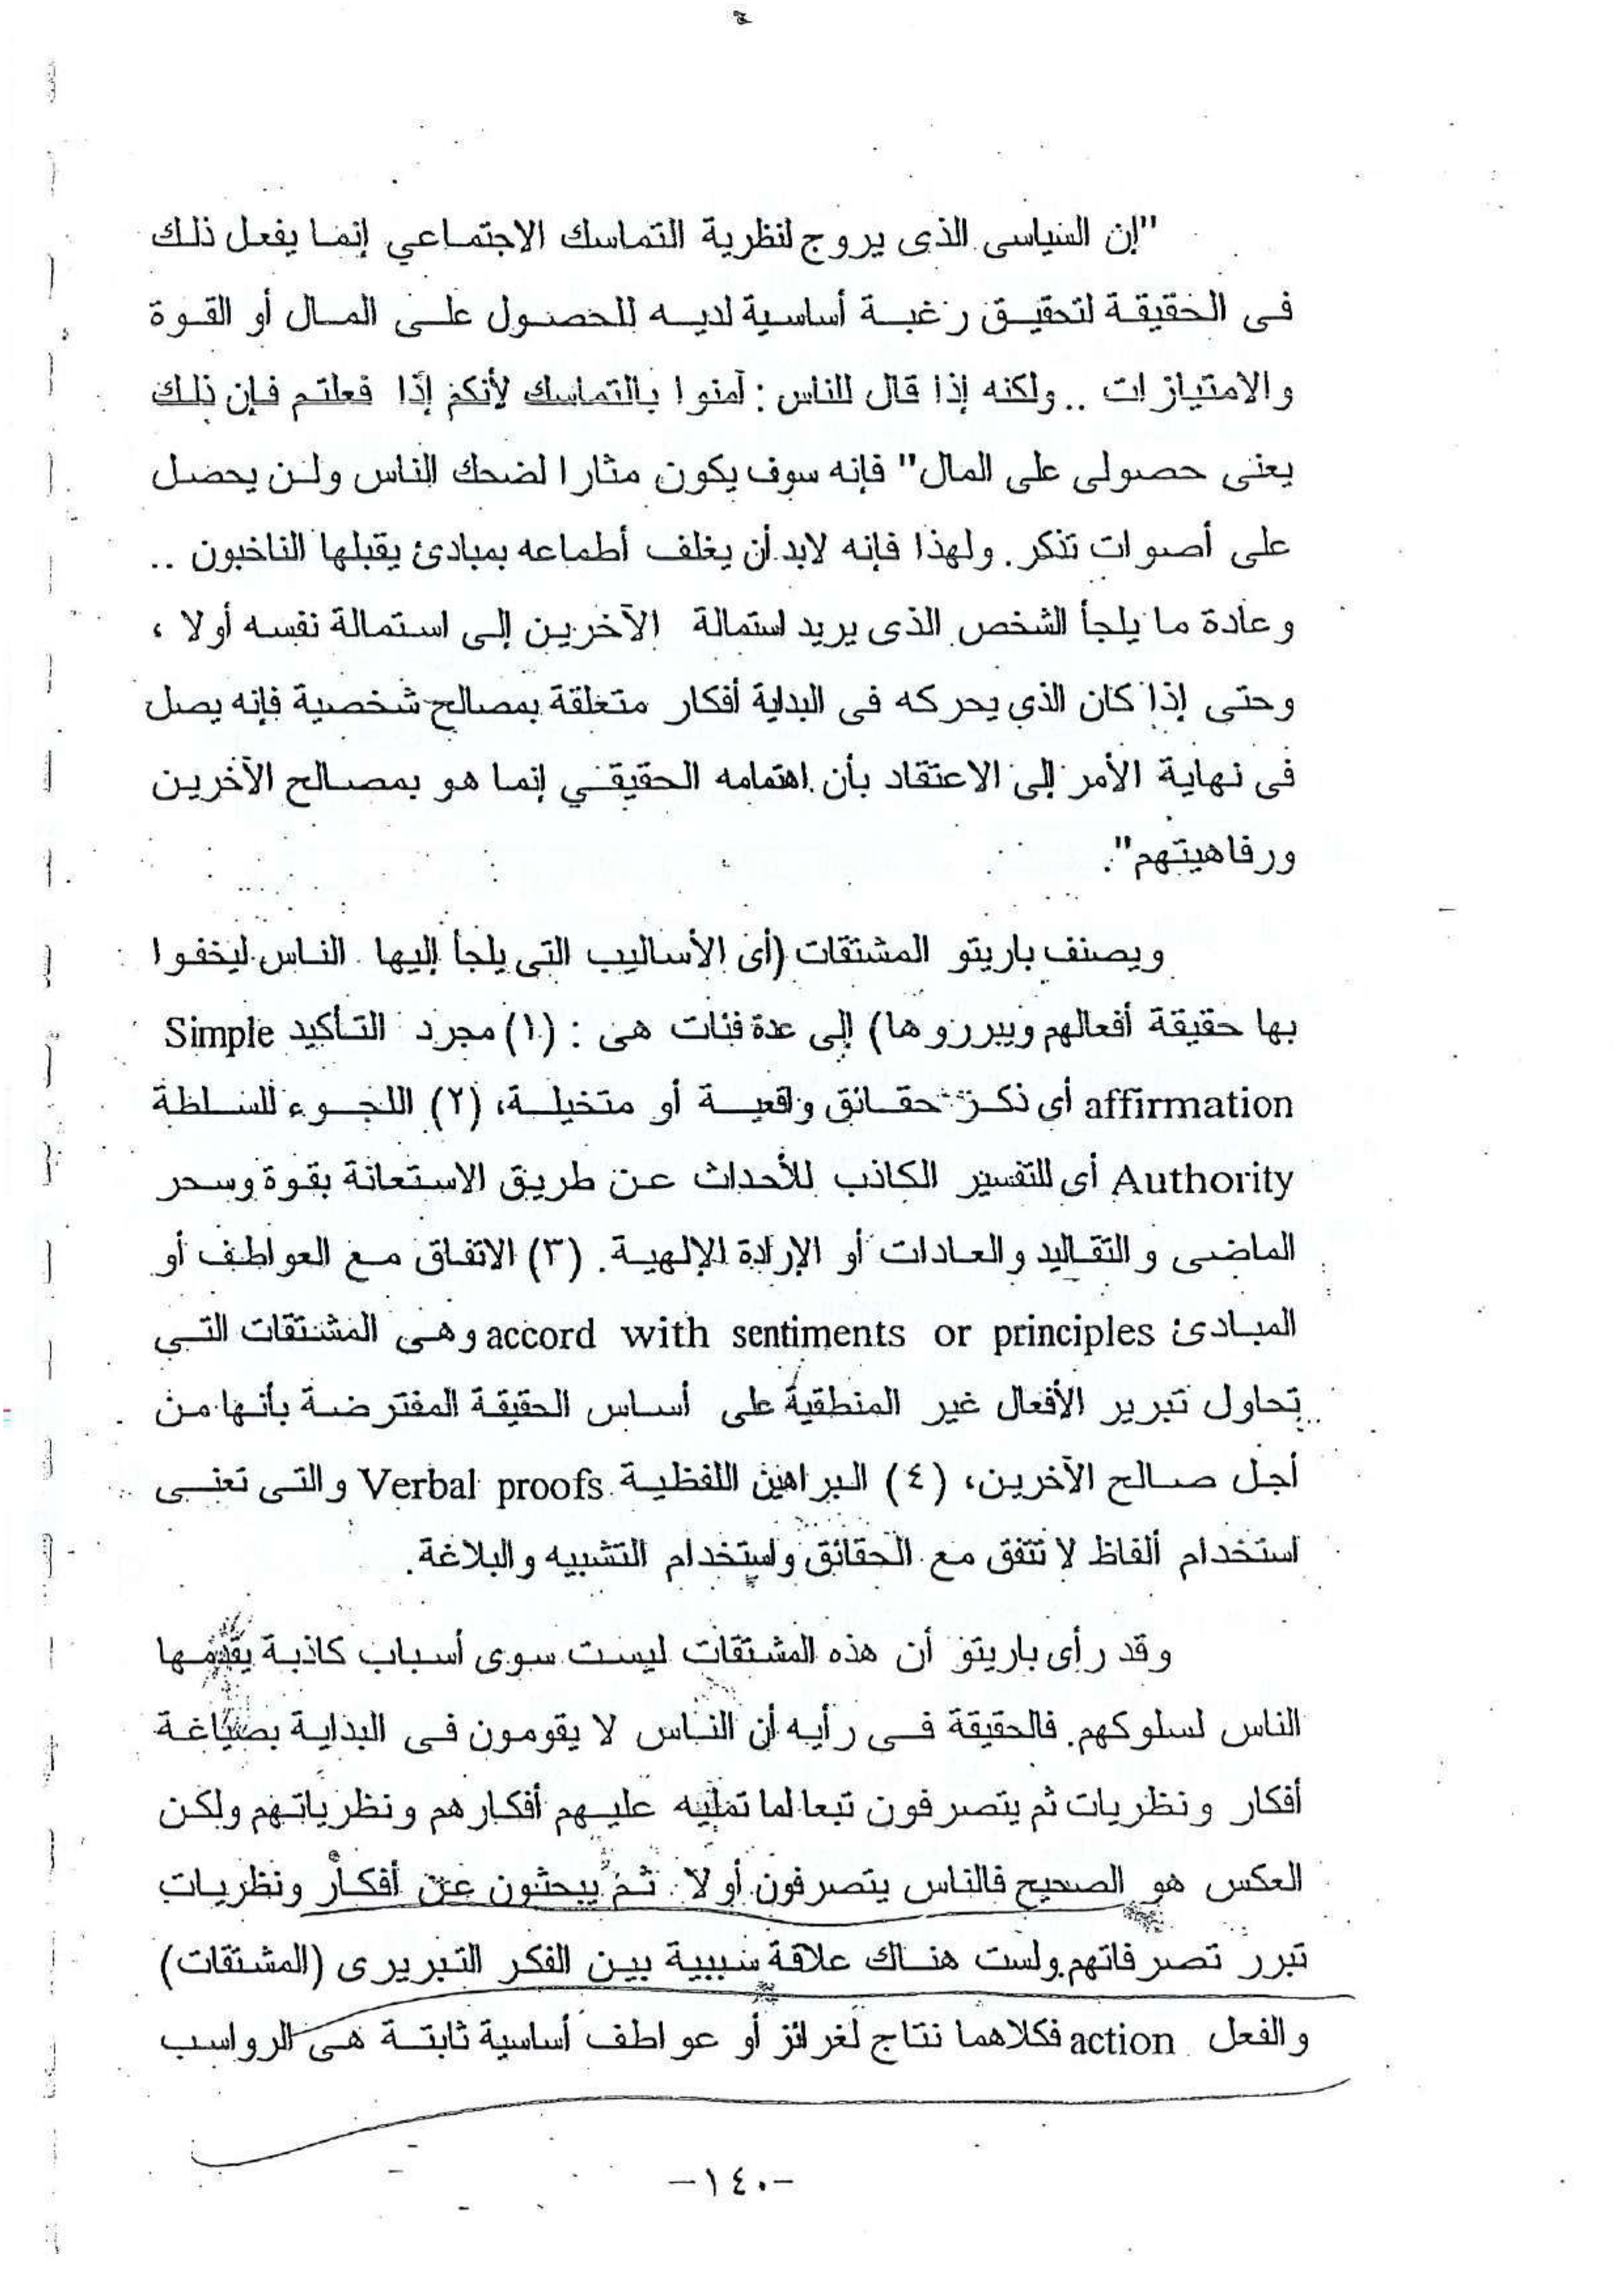 "إن السياسى الذى يروج لنظرية التماسك الاجتماعي إنما يفعل ذلك
فى الحقيقة لتحقيق رغبة أساسية لديه للحصول على المال أو القوة
والامتيازات .. ولكنه إذا قال للناس : آمنوا بالتماسك لأنكم إذا فعلتم فإن ذلك
يعنى حصولى على المال" فإنه سوف يكون مثارا لضحك الناس ولن يحصل
على أصوات تذكر. ولهذا فإنه لابد أن يغلف أطماعه بمبادئ يقبلها الناخبون ..
وعادة ما يلجأ الشخص الذى يريد استمالة الآخرين إلى استمالة نفسه أولا ،
وحتى إذا كان الذي يحركه فى البداية أفكار متعلقة بمصالح شخصية فإنه يصل
فى نهاية الأمر إلى الاعتقاد بأن اهتمامه الحقيقي إنما هو بمصالح الآخرين
ورفاهيتهم".
ويصنف باريتو المشتقات (أى الأساليب التى يلجأ إليها الناس ليخفوا
بها حقيقة أفعالهم ويبرزوها) إلى عدة فئات هى : (١) مجرد التأكيد Simple
affirmation أى ذكر حقائق واقعية أو متخيلة، (٢) اللجوء للسلطة
Authority أى للتفسير الكاذب للأحداث عن طريق الاستعانة بقوة وسحر
الماضى والتقاليد والعادات أو الإرادة الإلهية. (٣) الاتفاق مع العواطف أو
المبادئ accord with sentiments or principles وهى المشتقات التي
تحاول تبرير الأفعال غير المنطقية على أساس الحقيقة المفترضة بأنها من
أجل صالح الآخرين، (٤) البراهين اللفظية Verbal proofs والتى تعنى
استخدام ألفاظ لا تتفق مع الحقائق واستخدام التشبيه والبلاغة.
وقد رأى باريتو أن هذه المشتقات ليست سوى أسباب كاذبة يقدمها
الناس لسلوكهم. فالحقيقة فى رأيه أن الناس لا يقومون فى البداية بصياغة
أفكار ونظريات ثم يتصرفون تبعا لما تمليه عليهم أفكارهم ونظرياتهم ولكن
العكس هو الصحيح فالناس يتصرفون أولا ثم يبحثون عن أفكار ونظريات
تبرر تصرفاتهم ولست هناك علاقة سببية بين الفكر التبريرى (المشتقات)
والفعل action فكلاهما نتاج لغرائز أو عواطف أساسية ثابتة هى الرواسب
-١٤٠-